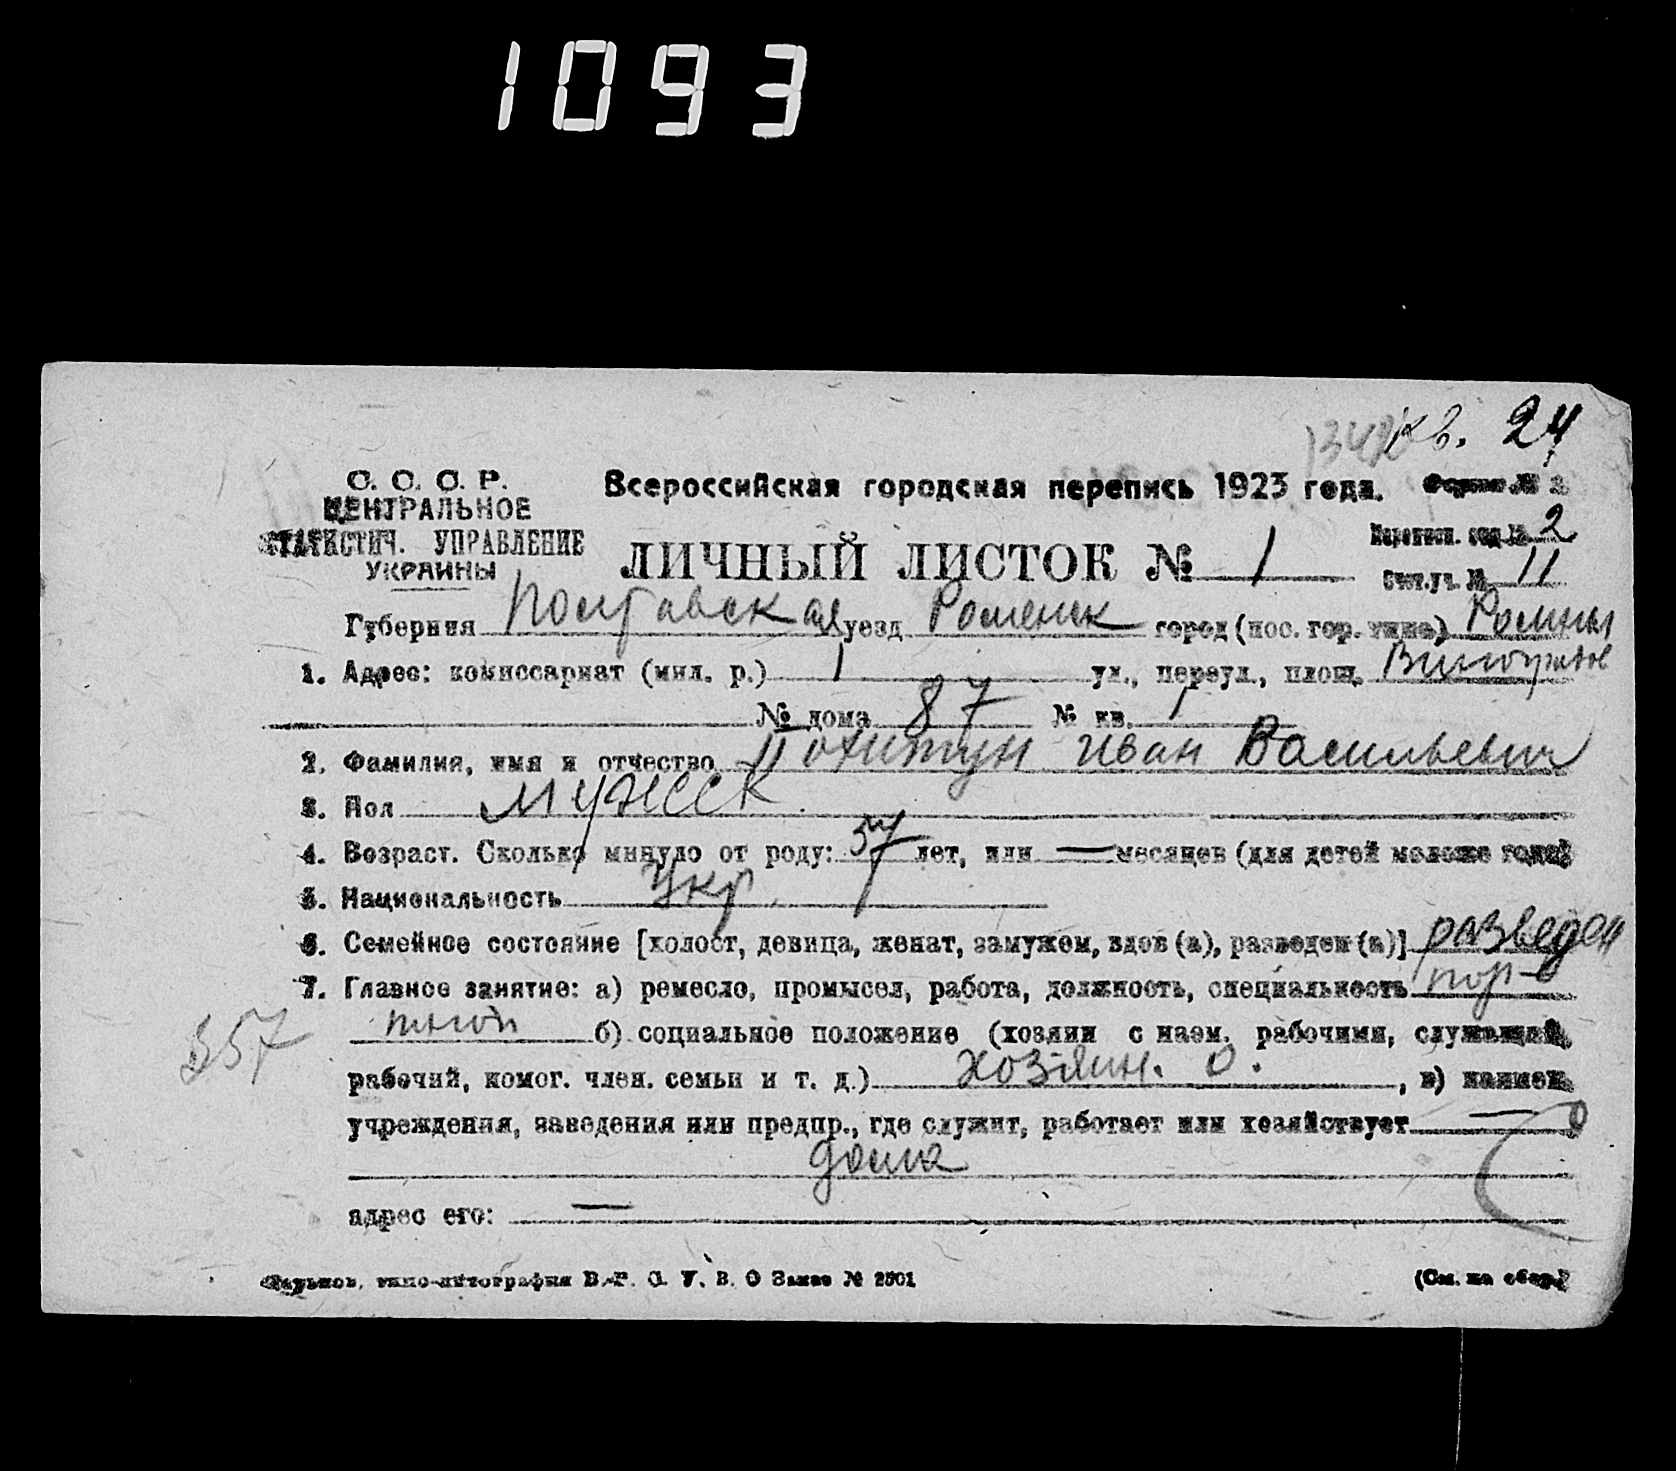 1093
кв. 24
С. С. С. Р.
ЦЕНТРАЛЬНОЕ
СТАТИСТИЧ. УПРАВЛЕНИЕ
УКРАИНЫ
Всероссийская городская перепись 1923 года. Форма № 2
ЛИЧНЫЙ ЛИСТОК № 1
Переписн. отд. № 2
Счет. уч. № 11
Губерния Полтавская уезд Роменск город (пос. гор. типа) Ромны
1. Адрес: комиссариат (мил. р.) 1 ул., переул., площ.
№ дома 87 № кв. 1
2. Фамилия, имя и отчество Похитун Иван Васильевич
3. Пол мужеск
4. Возраст. Сколько минуло от роду: 57 лет, или — месяцев (для детей моложе года)
5. Национальность Укр.
6. Семейное состояние [холост, девица, женат, замужем, вдов (а), разведен (а)] разведен
7. Главное занятие: а) ремесло, промысел, работа, должность, специальность порт-
ной б) социальное положение (хозяин с наем. рабочими, служащий,
357
рабочий, комог. член. семьи и т. д.) хозяин. о. , в) наимен.
учреждения, заведения или предпр., где служит, работает или хозяйствует —
дома
адрес его: —
Харьков, типо-литография В. Р. С. У. В. О Заказ № 2501 (См. на обор.)